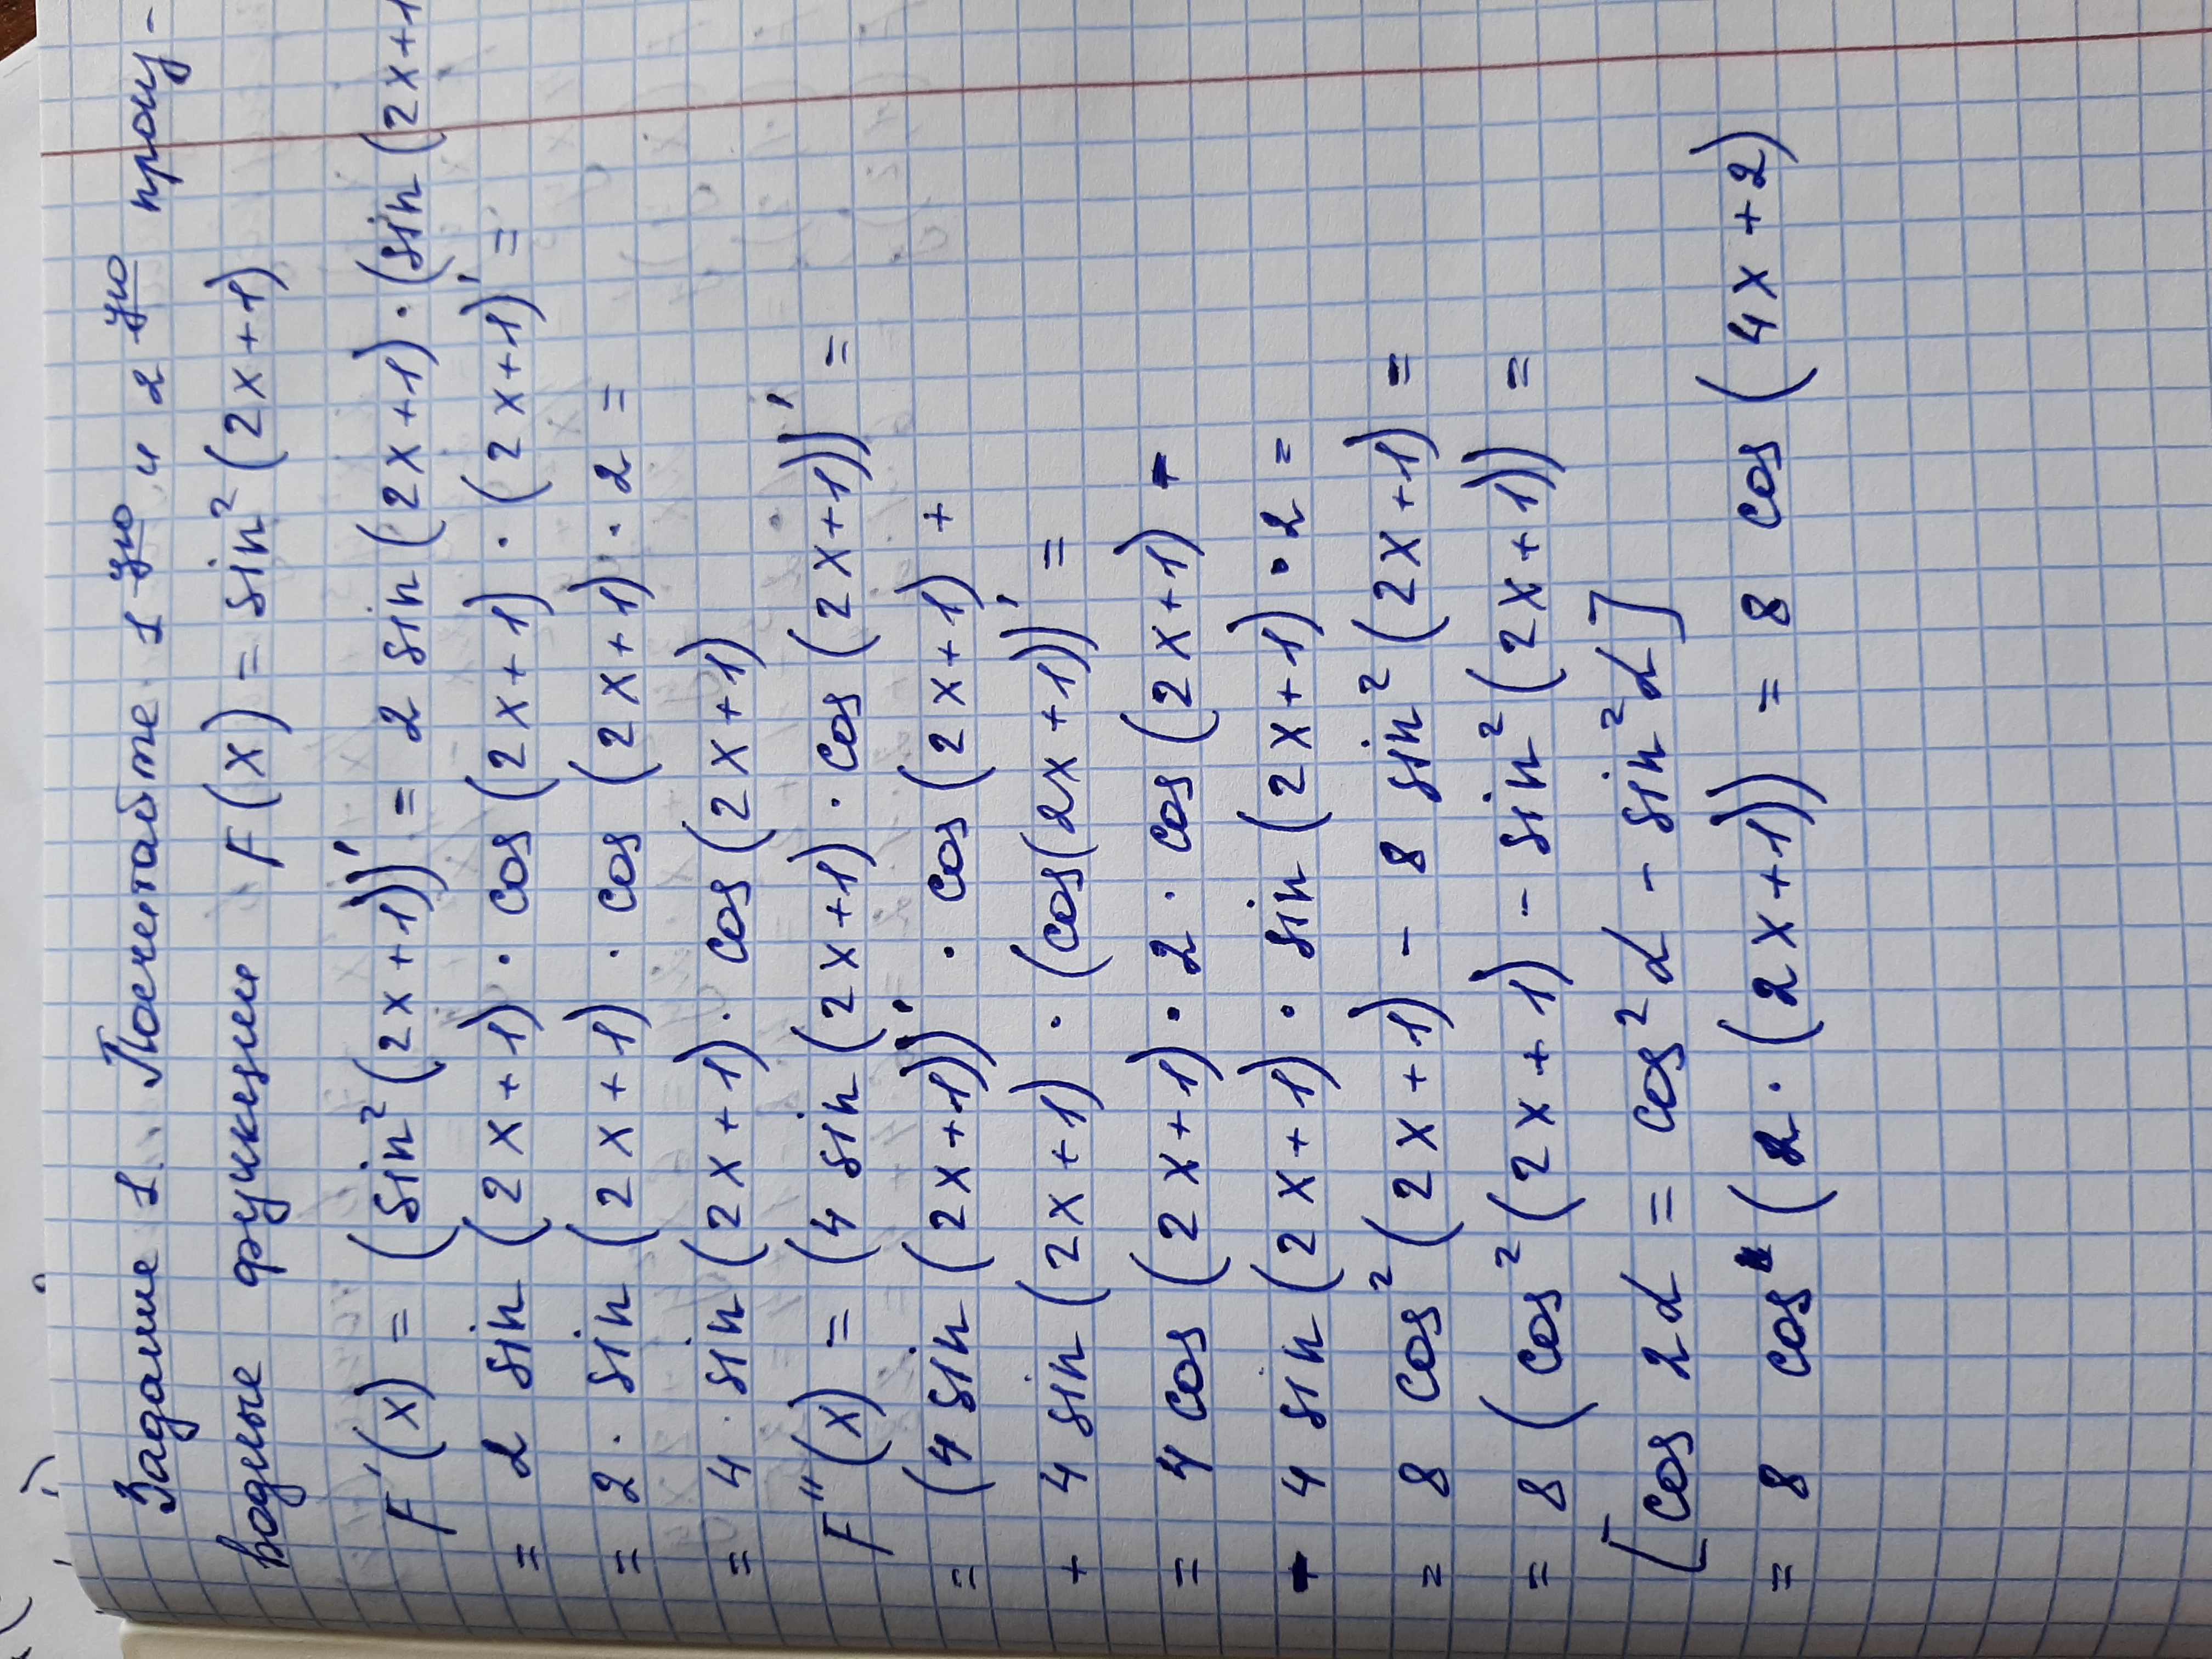 Задание 1. Посчитайте 1ую и 2ую произ-
водные функции F(x) = sin²(2x+1)
F'(x) = (sin²(2x+1))' = 2 sin(2x+1)·(sin(2x+1
= 2 sin(2x+1)·cos(2x+1)·(2x+1)' =
= 2·sin(2x+1)·cos(2x+1)·2 =
= 4·sin(2x+1)·cos(2x+1)
F''(x) = (4 sin(2x+1)·cos(2x+1))' =
= (4 sin(2x+1))'·cos(2x+1) +
+ 4 sin(2x+1)·(cos(2x+1))' =
= 4 cos(2x+1)·2·cos(2x+1) -
- 4 sin(2x+1)·sin(2x+1)·2 =
= 8 cos²(2x+1) - 8 sin²(2x+1) =
= 8 (cos²(2x+1) - sin²(2x+1)) =
[cos 2α = cos²α - sin²α]
= 8 cos(2·(2x+1)) = 8 cos(4x+2)